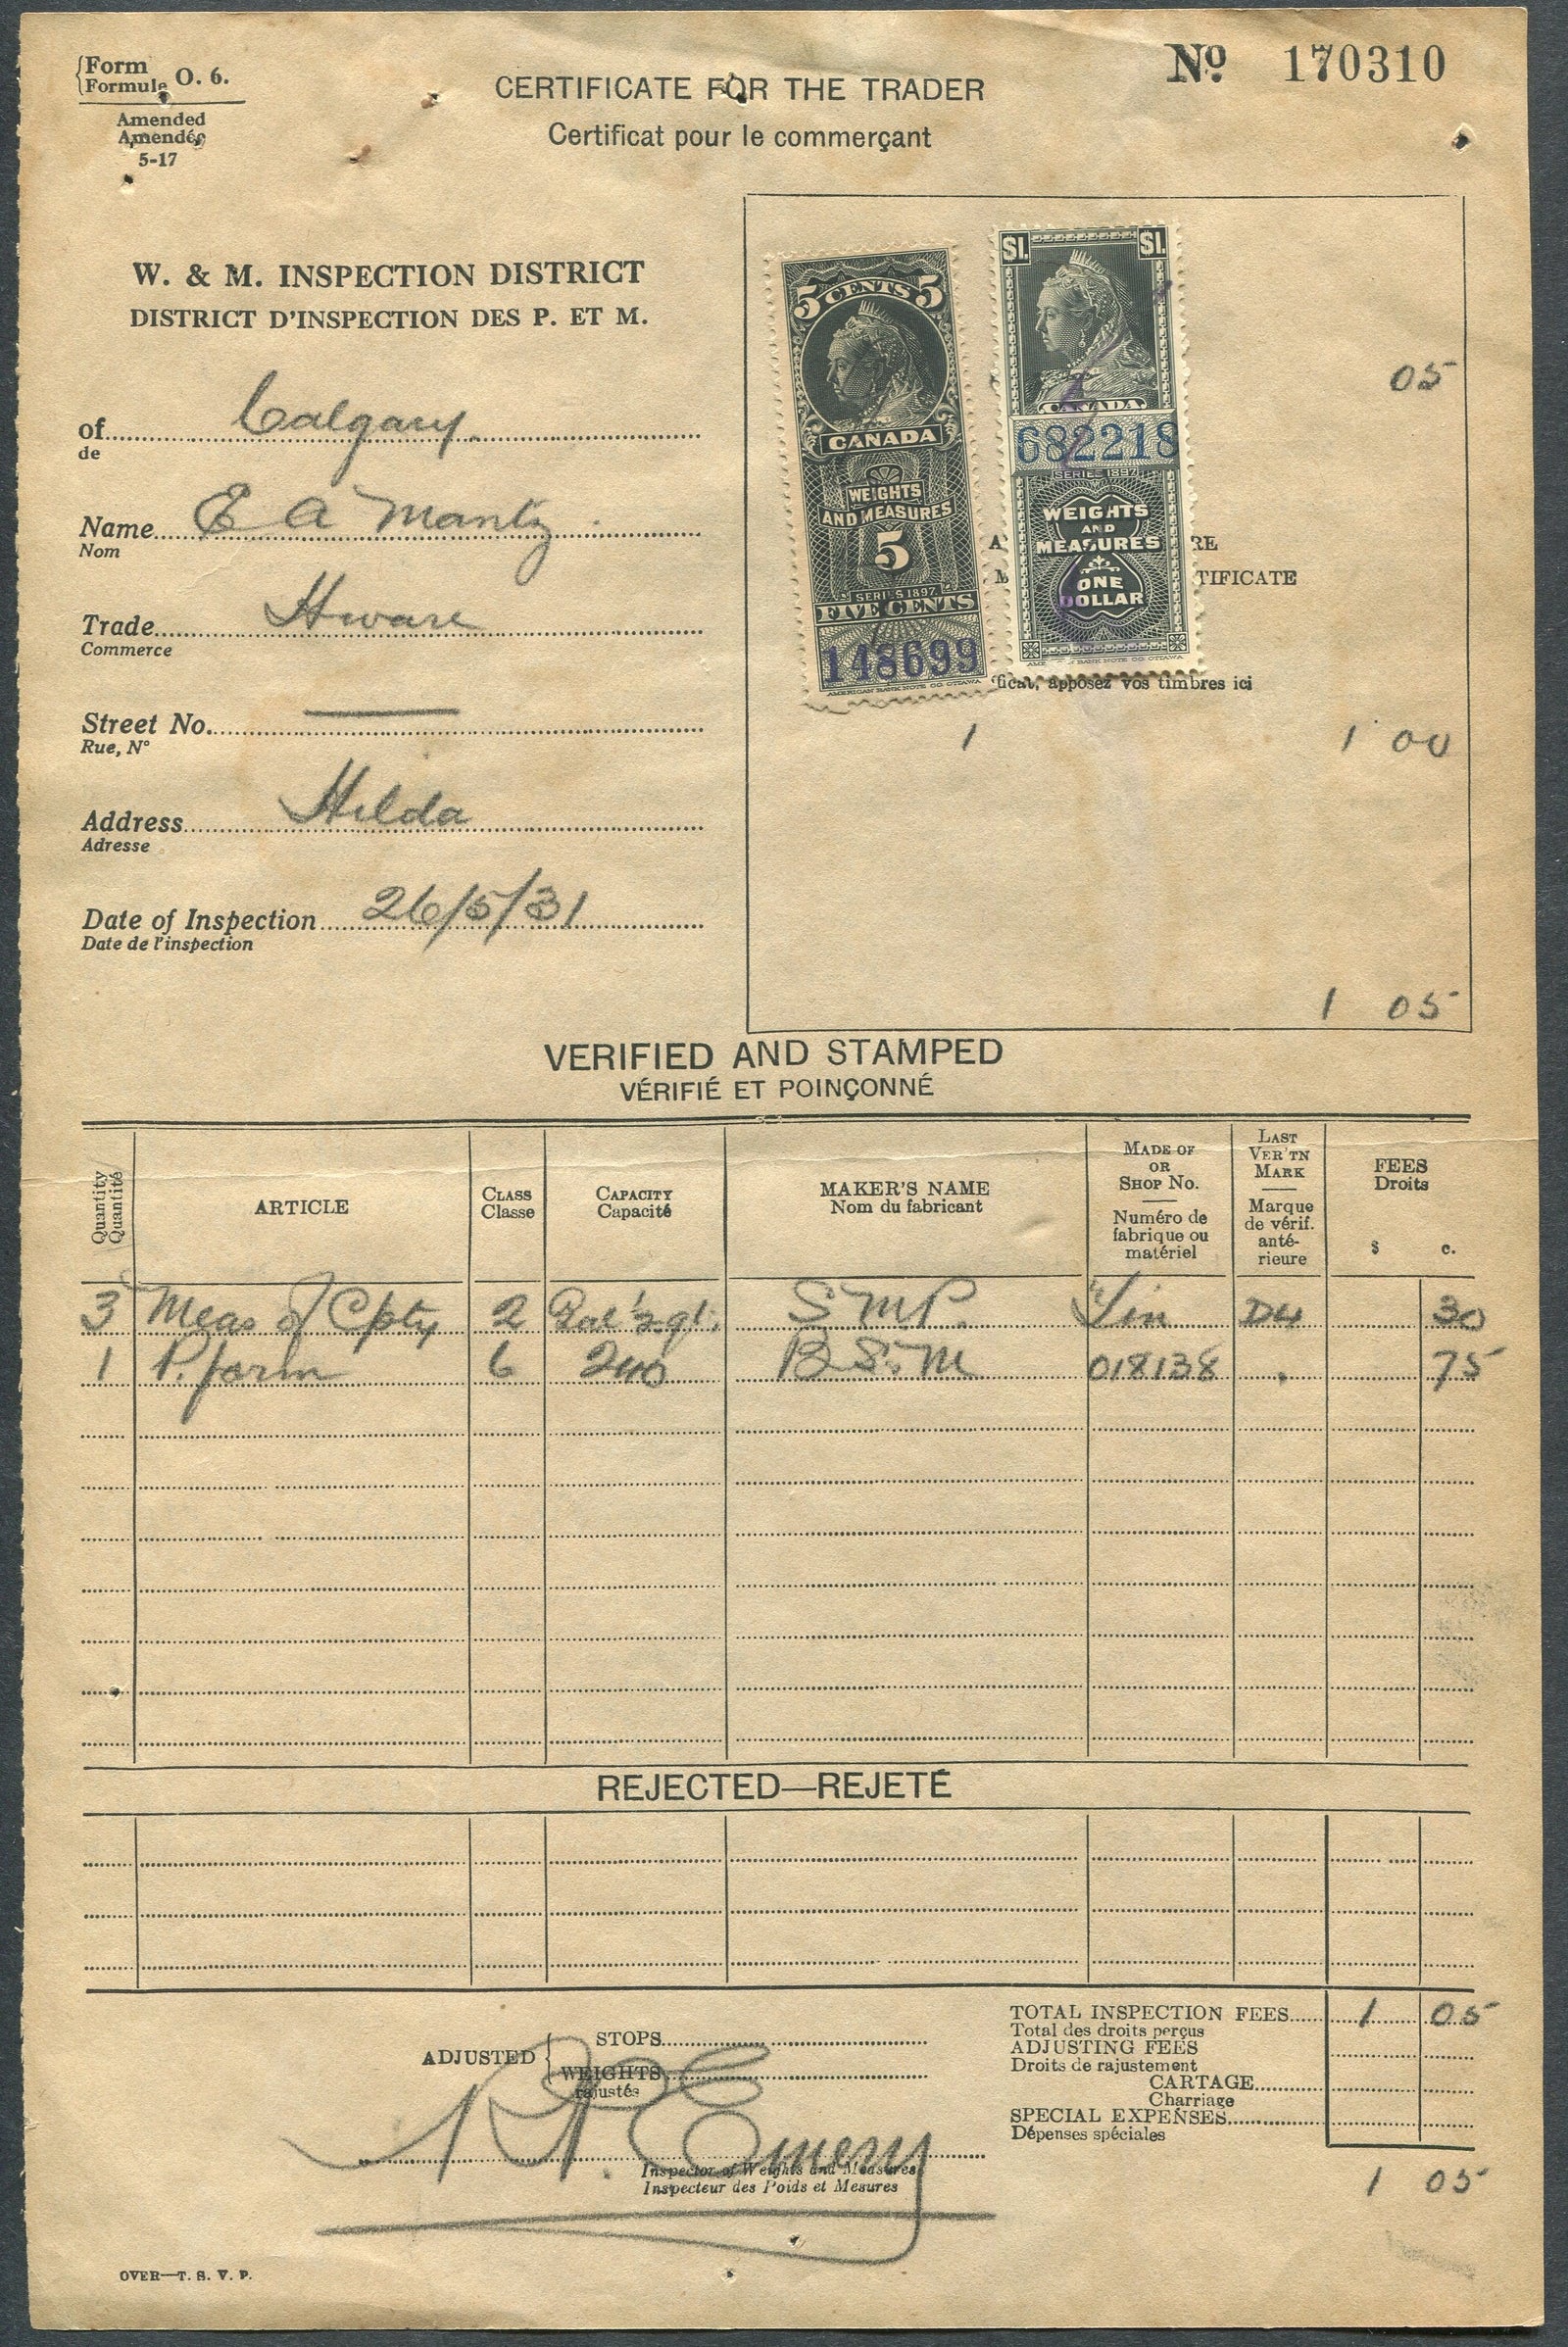 Form
Formule O. 6.
Amended
Amendée
5-17
CERTIFICATE FOR THE TRADER
Certificat pour le commerçant
No 170310
W. & M. INSPECTION DISTRICT
DISTRICT D'INSPECTION DES P. ET M.
of Calgary
de
Name E A Mantz
Nom
Trade Hware
Commerce
Street No. —
Rue, N°
Address Hilda
Adresse
Date of Inspection 26/5/31
Date de l'inspection
5 CENTS 5
CANADA
WEIGHTS
AND MEASURES
5
SERIES 1897
FIVE CENTS
148699
AMERICAN BANK NOTE CO. OTTAWA
$1. $1.
CANADA
682218
SERIES 1897
WEIGHTS
AND
MEASURES
ONE
DOLLAR
BANK NOTE CO. OTTAWA
05
A RE
M TIFICATE
ficat, apposez vos timbres ici
1 1 00
1 05
VERIFIED AND STAMPED
VÉRIFIÉ ET POINÇONNÉ
Quantity
Quantité
ARTICLE
CLASS
Classe
CAPACITY
Capacité
MAKER'S NAME
Nom du fabricant
MADE OF
OR
SHOP No.
Numéro de
fabrique ou
matériel
LAST
VER'TN
MARK
Marque
de vérif.
anté-
rieure
FEES
Droits
$ c.
3 Meas of Cpty 2 Gal ½ qt. S M P. Tin D4 30
1 P. form 6 240 B. S. M 018138 . 75
REJECTED—REJETÉ
ADJUSTED
STOPS
WEIGHTS
rajustés
Emery
Inspector of Weights and Measures
Inspecteur des Poids et Mesures
TOTAL INSPECTION FEES 1 05
Total des droits perçus
ADJUSTING FEES
Droits de rajustement
CARTAGE
Charriage
SPECIAL EXPENSES
Dépenses spéciales
1 05
OVER—T. S. V. P.